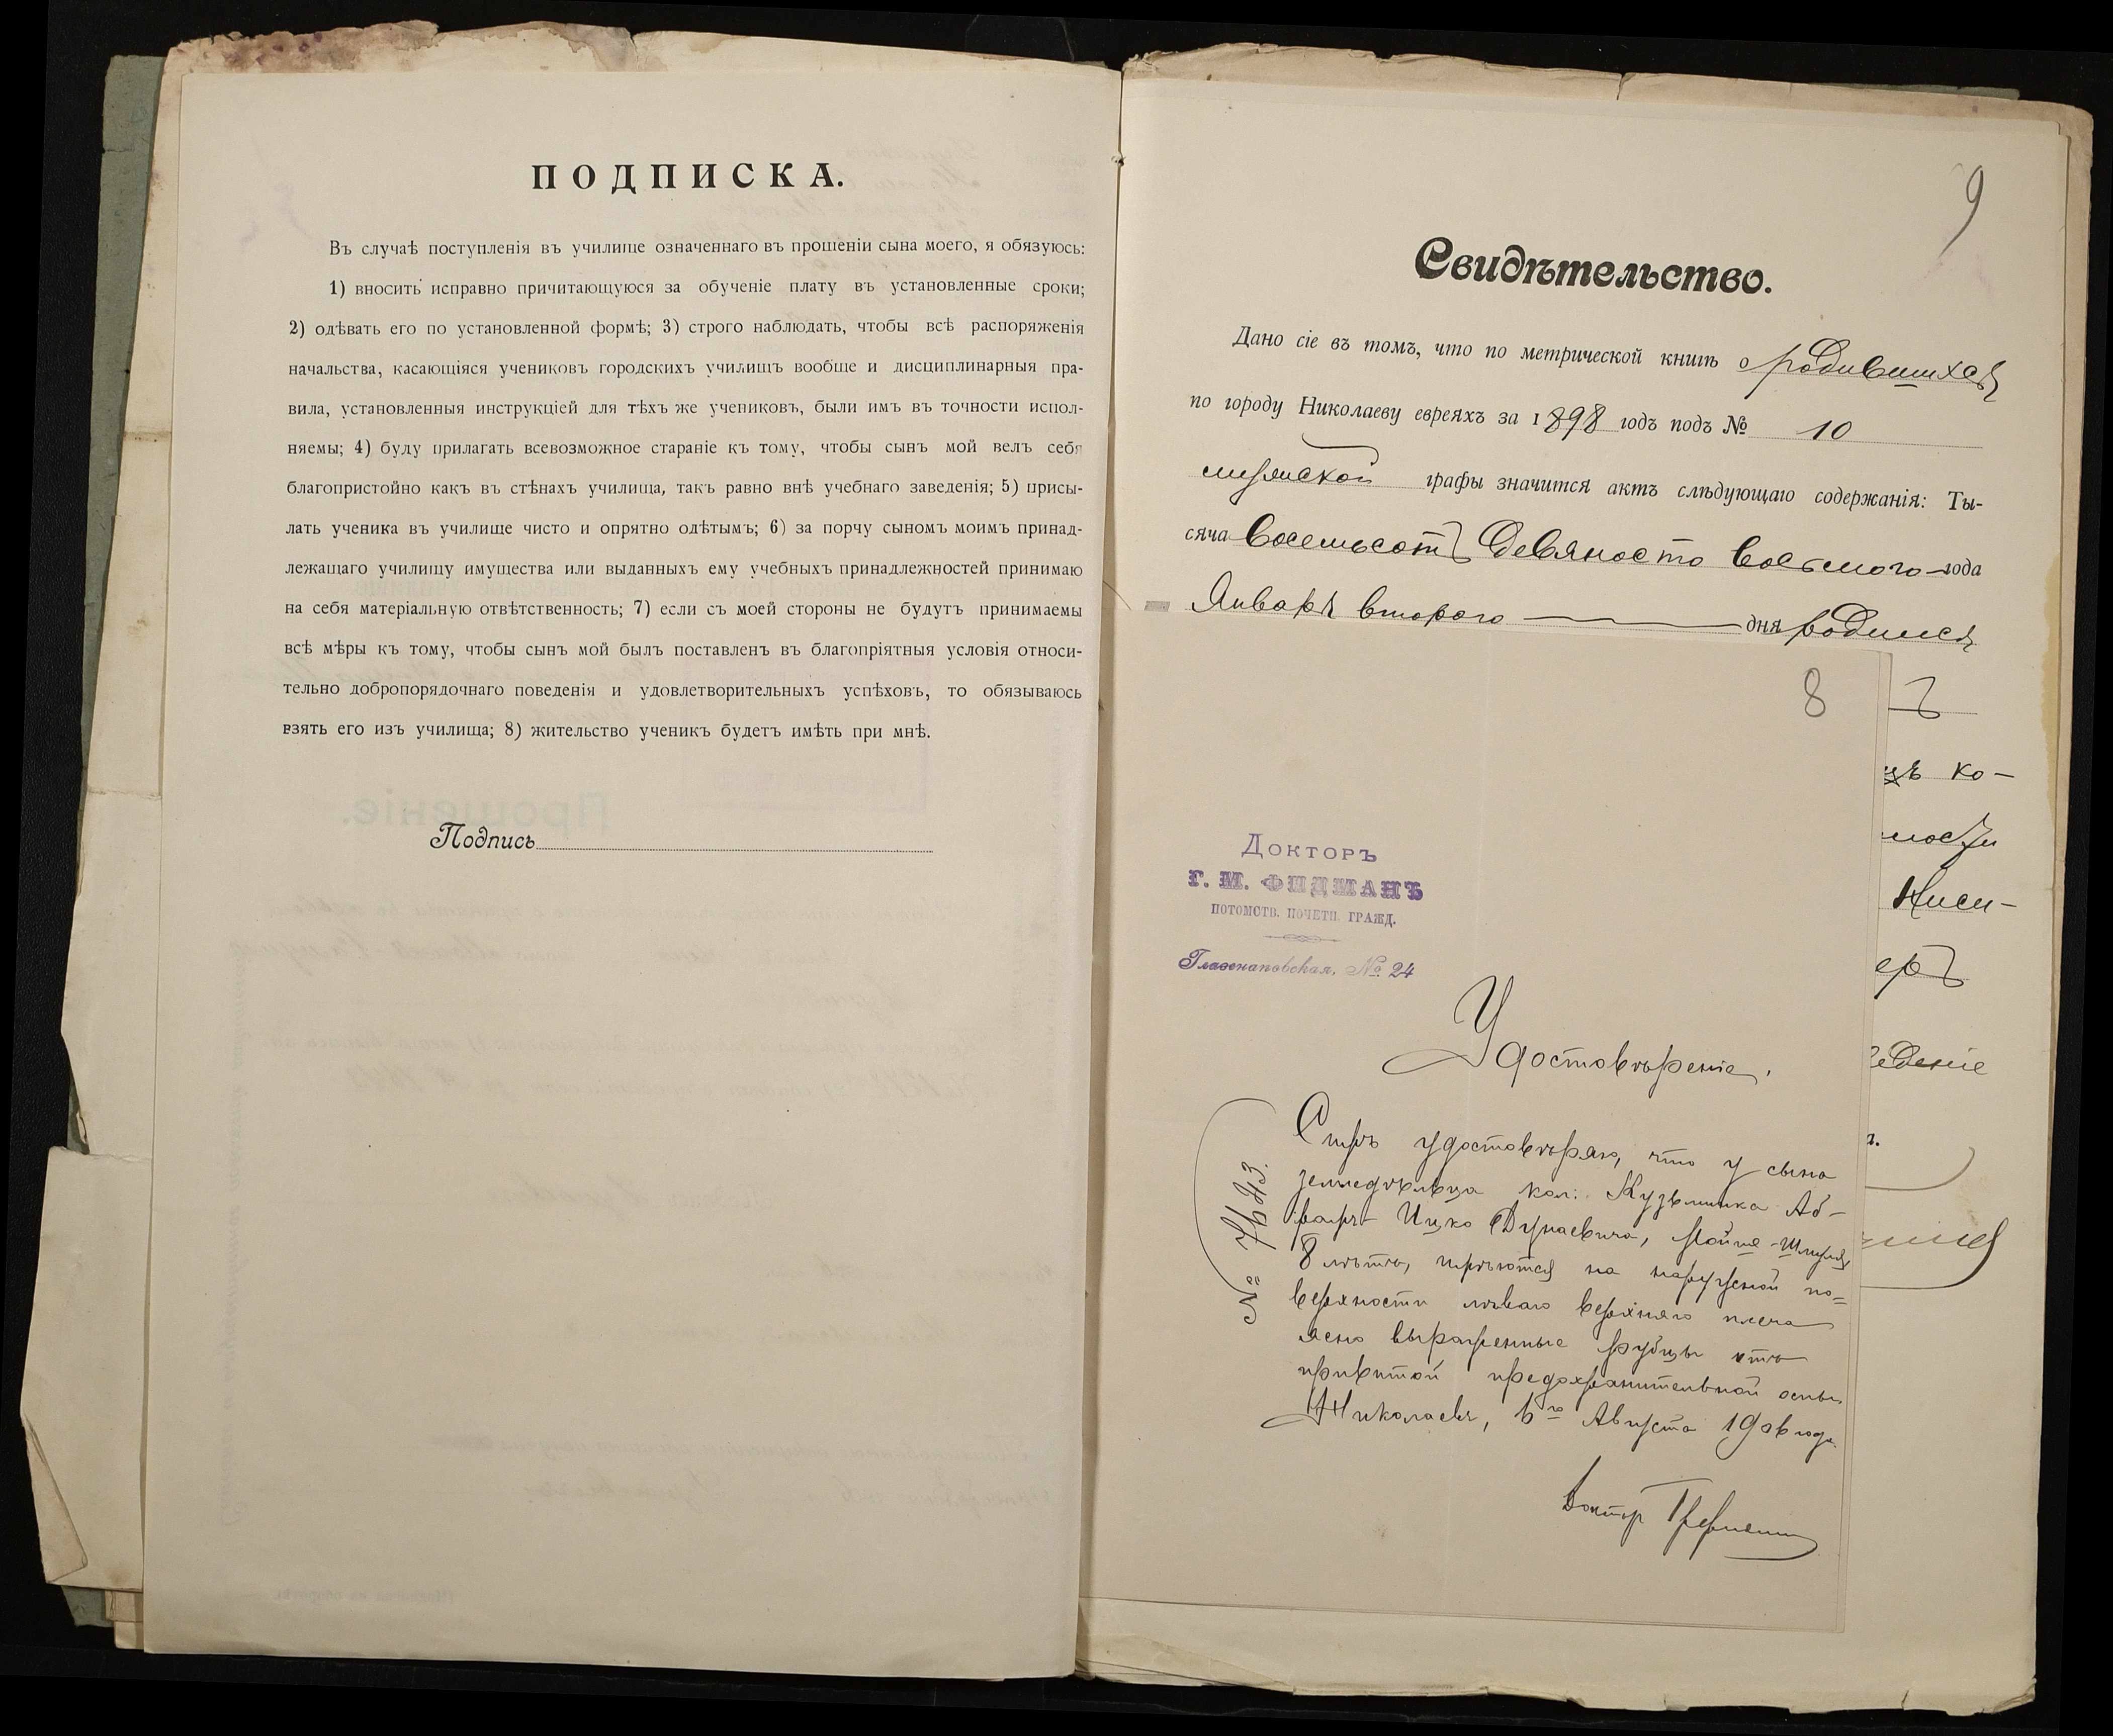 ПОДПИСКА.
Въ случаѣ поступленія въ училище означеннаго въ прошеніи сына моего, я обязуюсь:
1) вносить исправно причитающуюся за обученіе плату въ установленные сроки;
2) одѣвать его по установленной формѣ; 3) строго наблюдать, чтобы всѣ распоряженія
начальства, касающіяся учениковъ городскихъ училищъ вообще и дисциплинарныя пра-
вила, установленныя инструкціей для тѣхъ же учениковъ, были имъ въ точности испол-
няемы; 4) буду прилагать всевозможное стараніе къ тому, чтобы сынъ мой велъ себя
благопристойно какъ въ стѣнахъ училища, такъ равно внѣ учебнаго заведенія; 5) присы-
лать ученика въ училище чисто и опрятно одѣтымъ; 6) за порчу сыномъ моимъ принад-
лежащаго училищу имущества или выданныхъ ему учебныхъ принадлежностей принимаю
на себя матеріальную отвѣтственность; 7) если съ моей стороны не будутъ принимаемы
всѣ мѣры къ тому, чтобы сынъ мой былъ поставленъ въ благопріятныя условія относи-
тельно добропорядочнаго поведенія и удовлетворительныхъ успѣховъ, то обязываюсь
взять его изъ училища; 8) жительство ученикъ будетъ имѣть при мнѣ.
Подпись
9
Свидѣтельство.
Дано сіе въ томъ, что по метрической книгѣ о родившихся
по городу Николаеву евреяхъ за 1898 годъ подъ № 10
мужской графы значится актъ слѣдующаго содержанія: Ты-
сяча восемьсотъ девяносто восьмого года
Января второго дня родился
ко-
Ниси-
8
Докторъ
Г. М. ФИДМАНЪ
ПОТОМСТВ. ПОЧЕТН. ГРАЖД.
Глазенаповская, № 24
Удостовѣреніе.
№ 7643.
Симъ удостовѣряю, что у сына
земледѣльца кол. Кузьминка Аб-
рама Ицко Дунаевича, Мойше-Шмуля
8 лѣтъ, имѣются на наружной по-
верхности лѣваго верхняго плеча
ясно выраженные рубцы отъ
привитой предохранительной оспы.
Николаевъ, 6го Августа 1906 года.
Докторъ